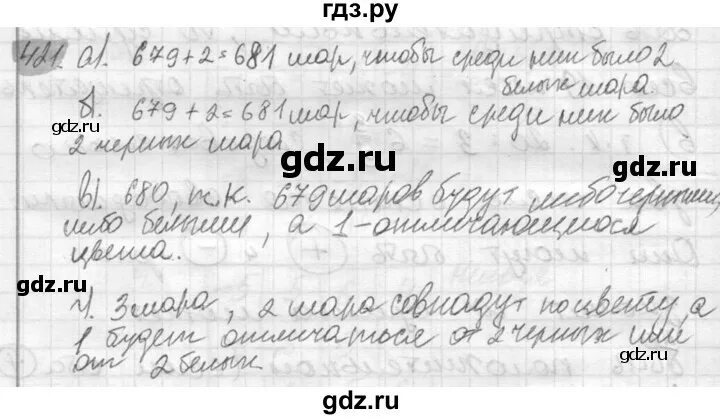 гдз.ру
421. а). 679+2=681 шар, чтобы среди них было 2
белых шара
б). 679+2=681 шар, чтобы среди них было
2 черных шара
gdz.ru gdz.ru
в). 680, т.к. 679 шаров будут либо черными,
либо белыми, а 1-отличающиеся
цвета.
gdz.ru gdz.ru
ч). 3 шара, 2 шара совпадут по цвету, а
1 будет отличаться от 2 черных или
от 2 белых
gdz.ru gdz.ru
gdz.ru